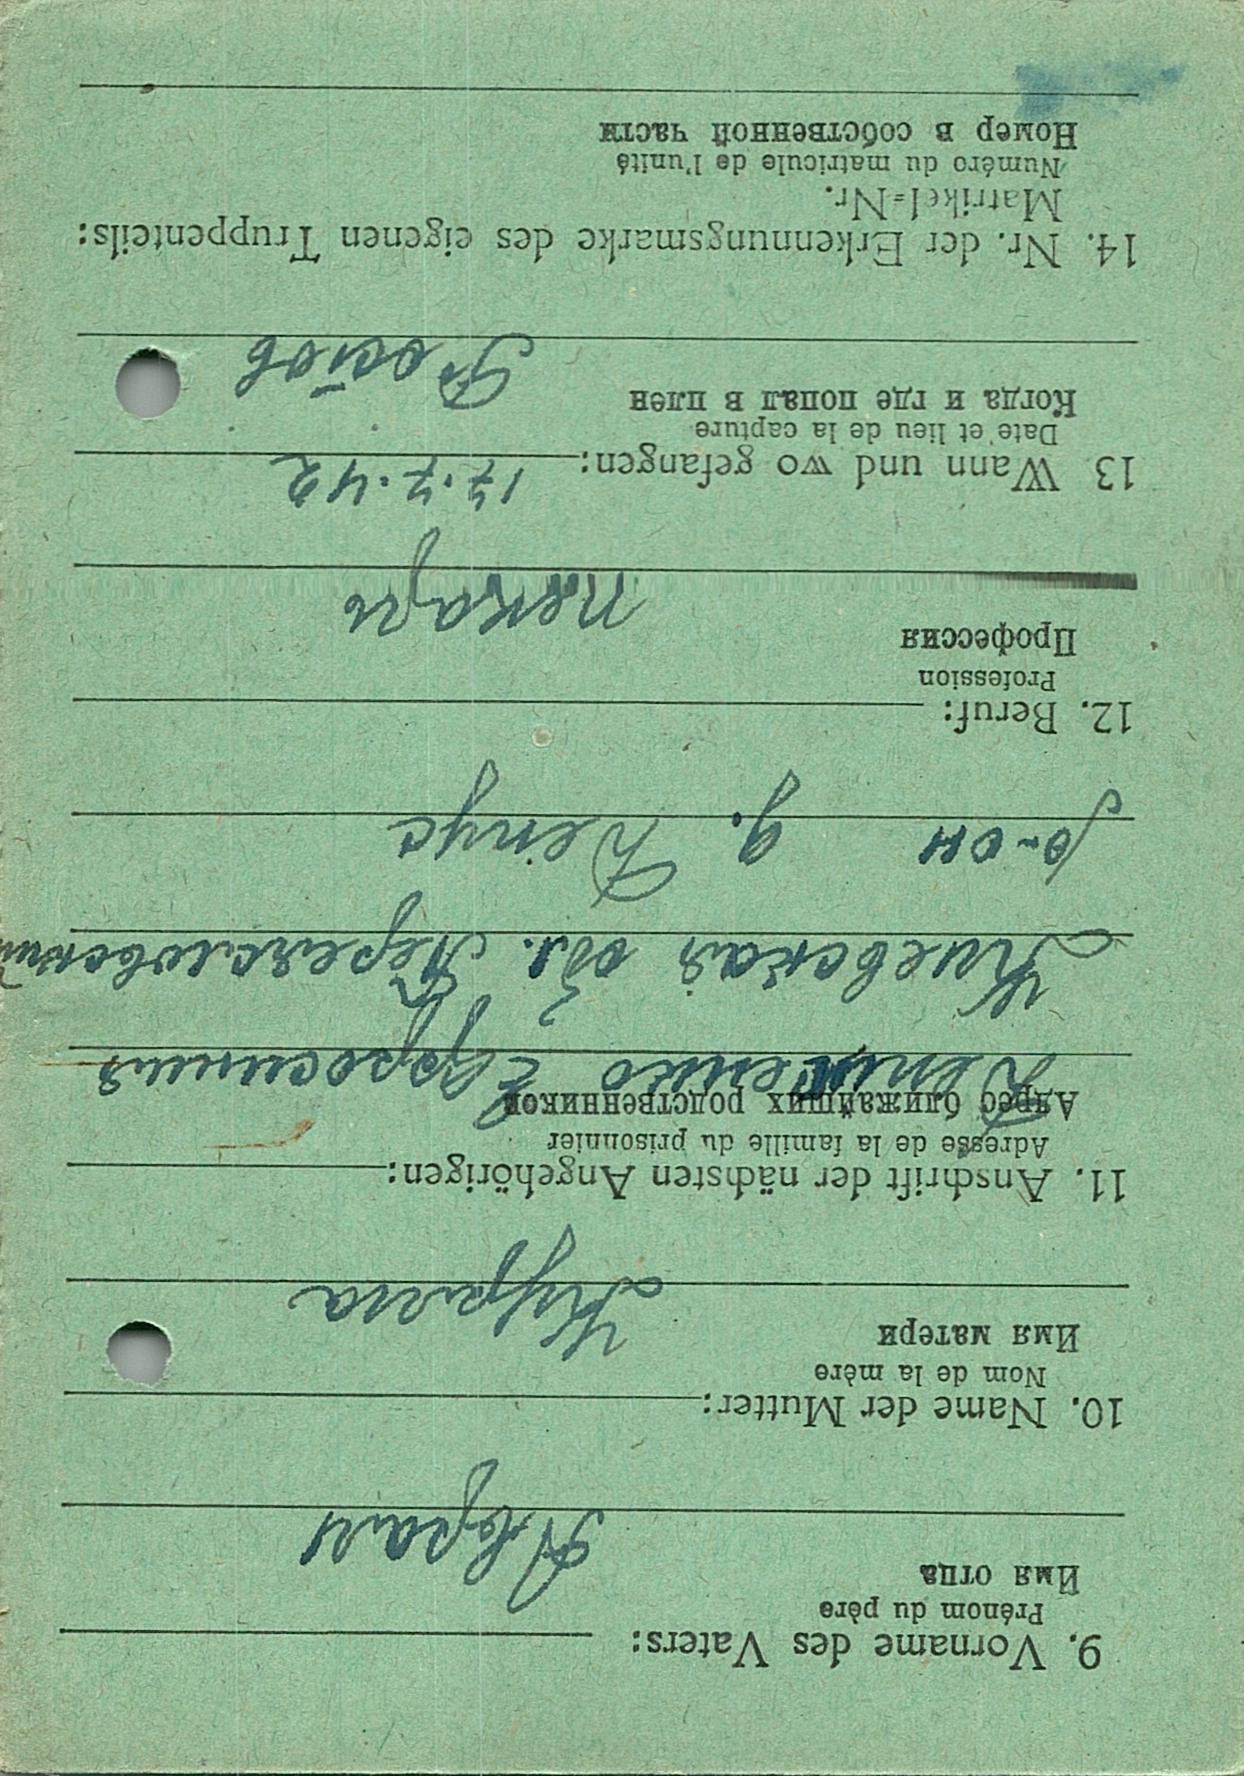 9. Vorname des Vaters:
Prénom du père
Имя отца
Аврам
10. Name der Mutter:
Nom de la mère
Имя матери
11. Anschrift der nächsten Angehörigen:
Adresse de la famille du prisonnier
Адрес ближайших родственников
Ефросиния
Киевская обл. Переясловский
р-он д.
12. Beruf:
Profession
Профессия
пекарь
13 Wann und wo gefangen:
17.7.42
Date et lieu de la capture
Когда и где попал в плен
Ростов
14. Nr. der Erkennungsmarke des eigenen Truppenteils:
Matrikel=Nr.
Numéro du matricule de l'unité
Номер в собственной части